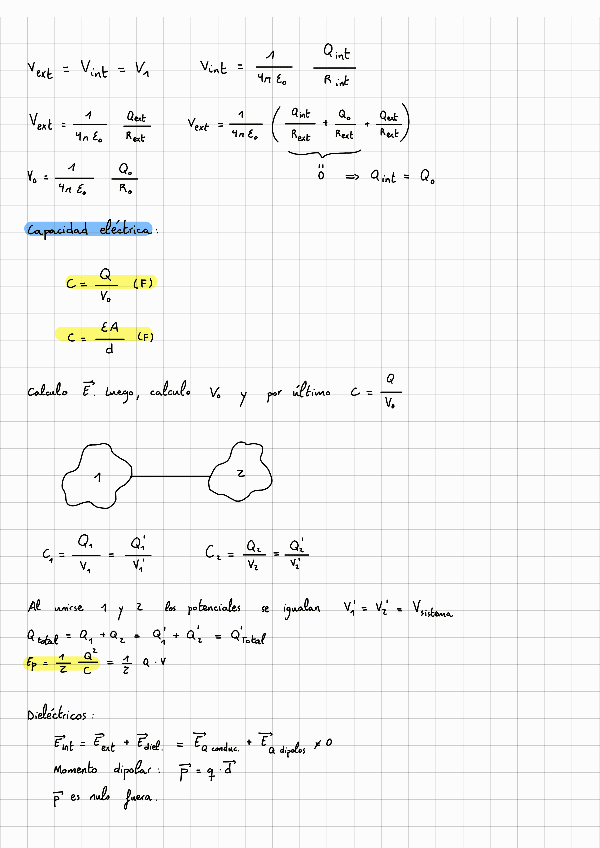 V_ext = V_int = V_1    V_int = 1/(4π ε_0) Q_int/R_int
V_ext = 1/(4π ε_0) Q_ext/R_ext    V_ext = 1/(4π ε_0) (Q_int/R_ext + Q_0/R_ext + Q_ext/R_ext)
V_0 = 1/(4π ε_0) Q_0/R_0    0 ⇒ Q_int = Q_0
Capacidad eléctrica:
C = Q/V_0 (F)
C = εA/d (F)
Calculo E⃗. Luego, calculo V_0 y por último C = Q/V_0
1    2
C_1 = Q_1/V_1 = Q_1'/V_1'    C_2 = Q_2/V_2 = Q_2'/V_2'
Al unirse 1 y 2 los potenciales se igualan V_1' = V_2' = V_sistema
Q_total = Q_1 + Q_2 = Q_1' + Q_2' = Q'_Total
Ep = 1/2 Q²/C = 1/2 Q·V
Dieléctricos:
E⃗_int = E⃗_ext + E⃗_diel. = E⃗_Q conduc. + E⃗_Q dipolos ≠ 0
Momento dipolar: p⃗ = q·d⃗
p⃗ es nulo fuera.